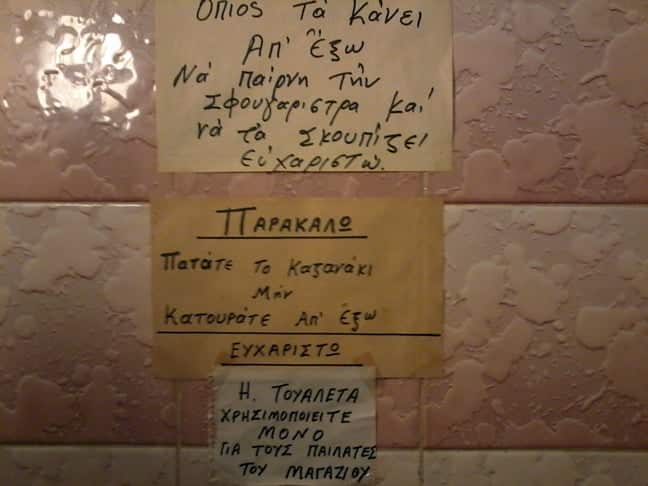 Οπιος Τα Κάνει
Απ' Έξω
Νά παίρνη Τήν
Σφουγαριστρα Και
νά τα Σκουπίζει
Ευχαριστώ.
ΠΑΡΑΚΑΛΩ
Πατάτε Το Καζανάκι
Μήν
Κατουράτε Απ' Έξω
ΕΥΧΑΡΙΣΤΩ
Η. ΤΟΥΑΛΕΤΑ
ΧΡΗΣΙΜΟΠΟΙΕΙΤΕ
ΜΟΝΟ
ΓΙΑ ΤΟΥΣ ΠΑΙΛΑΤΕΣ
ΤΟΥ ΜΑΓΑΖΙΟΥ